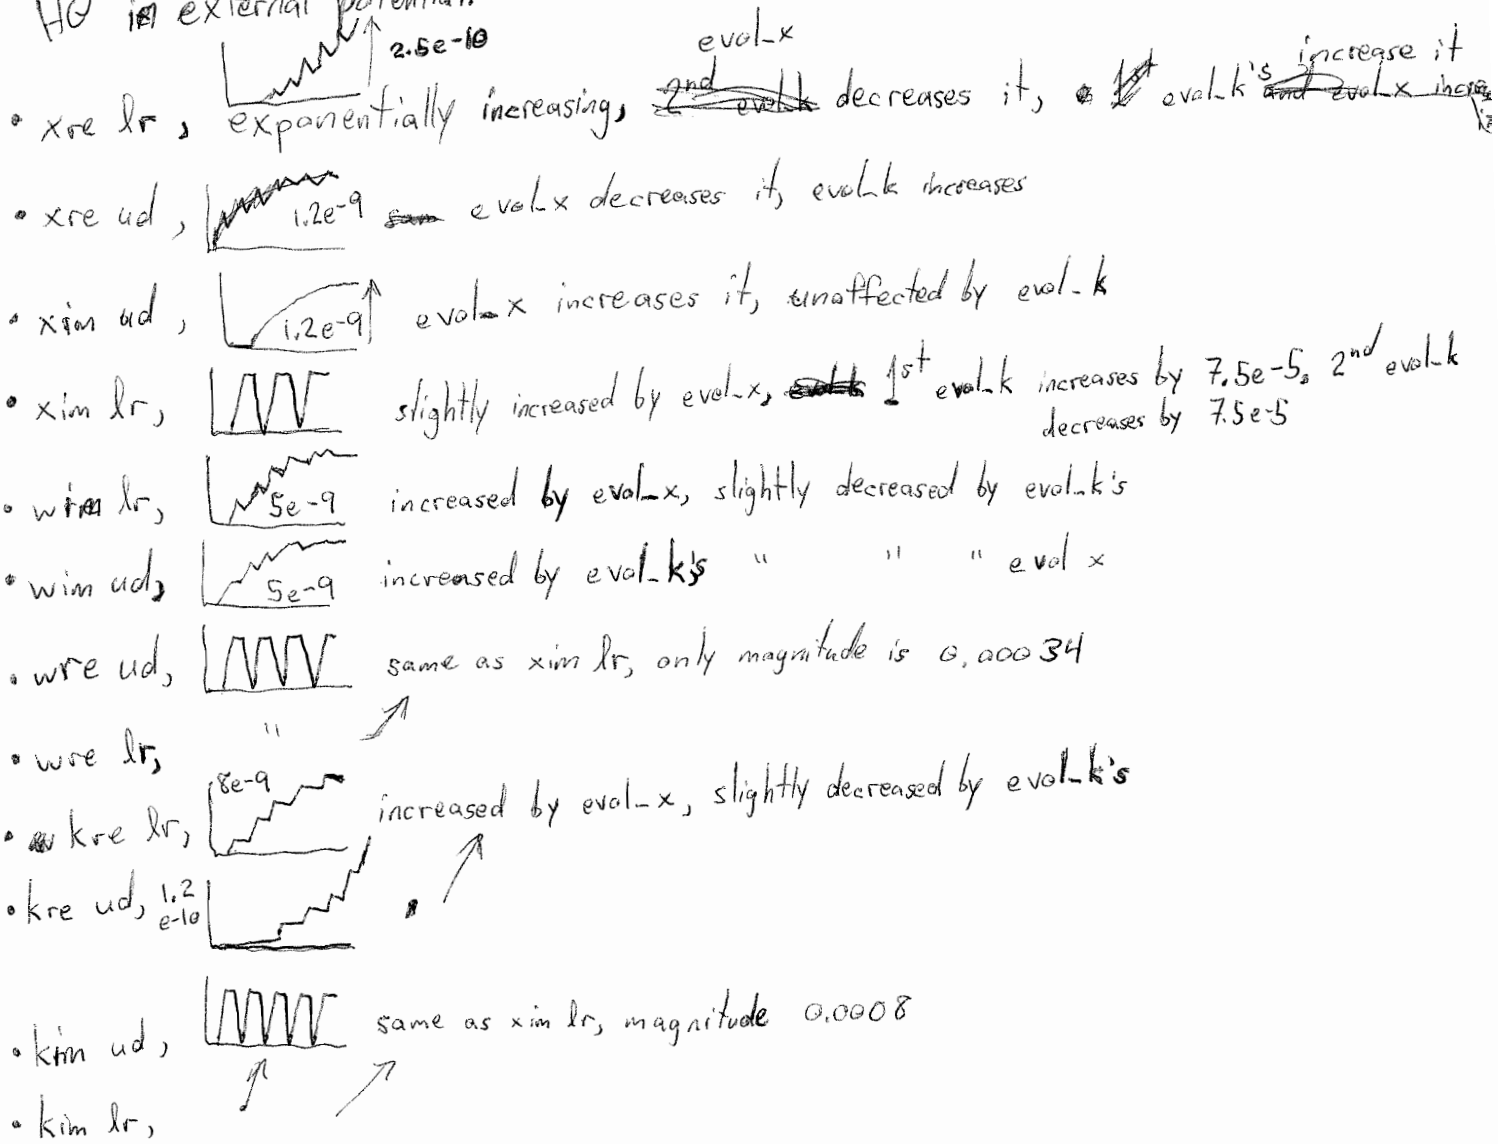 HO in external potential.
2.5e-10
evol_x
increase it
• xre lr, exponentially increasing, 2nd evol_k decreases it, 1st evol_k's and evol_x increases it
• xre ud, 1.2e-9 evol_x decreases it, evol_k increases
• xim ud, 1.2e-9 evol_x increases it, unaffected by evol_k
• xim lr, slightly increased by evol_x, evol_k 1st evol_k increases by 7.5e-5, 2nd evol_k
decreases by 7.5e-5
• wim lr, 5e-9 increased by evol_x, slightly decreased by evol_k's
• wim ud, 5e-9 increased by evol_k's " " " evol x
• wre ud, same as xim lr, only magnitude is 0.00034
• wre lr, "
8e-9
• kre lr, increased by evol_x, slightly decreased by evol_k's
• kre ud, 1.2
e-10
• kim ud, same as xim lr, magnitude 0.0008
• kim lr,